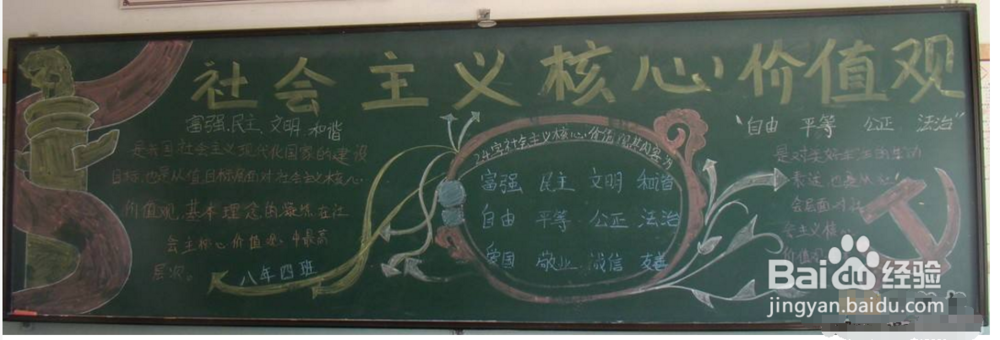 社会主义核心价值观
富强、民主、文明、和谐
是我国社会主义现代化国家的建设
目标,也是从价值目标层面对社会主义核心
价值观,基本理念的凝练,在社
会主义核心价值观,中最高
层次。
八年四班
24字社会主义核心价值观
富强 民主 文明 和谐
自由 平等 公正 法治
爱国 敬业 诚信 友善
"自由 平等 公正 法治"
是对美好社会的生动
表述,也是从社
会层面对社
会主义核心
价值观
Baidu 经验
jingyan.baidu.com